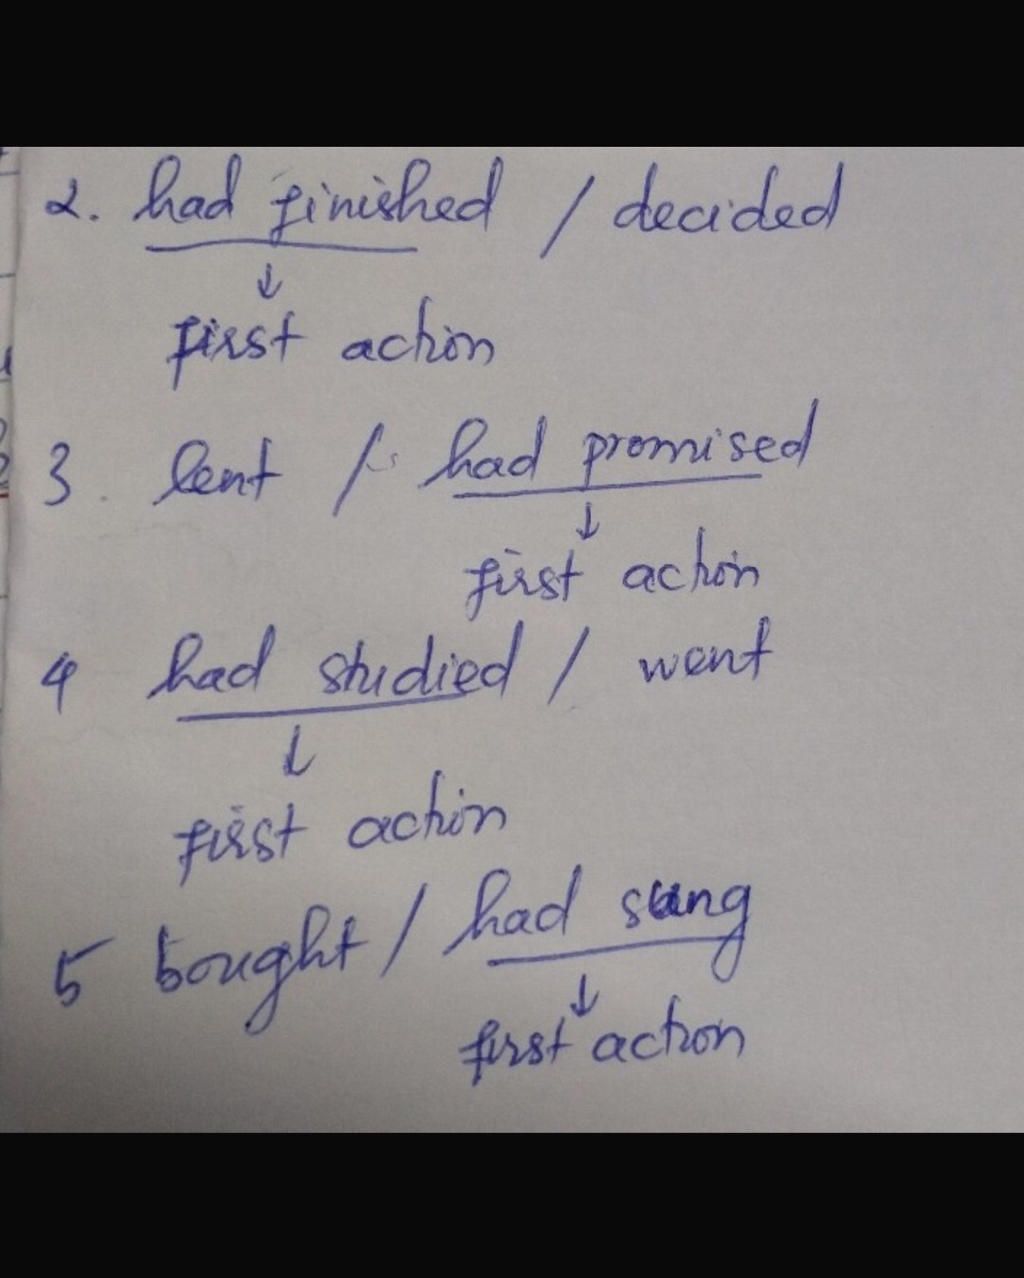 2. had finished / decided
↓
first action
3. lent / had promised
↓
first action
4 had studied / went
↓
first action
5 bought / had sung
↓
first action